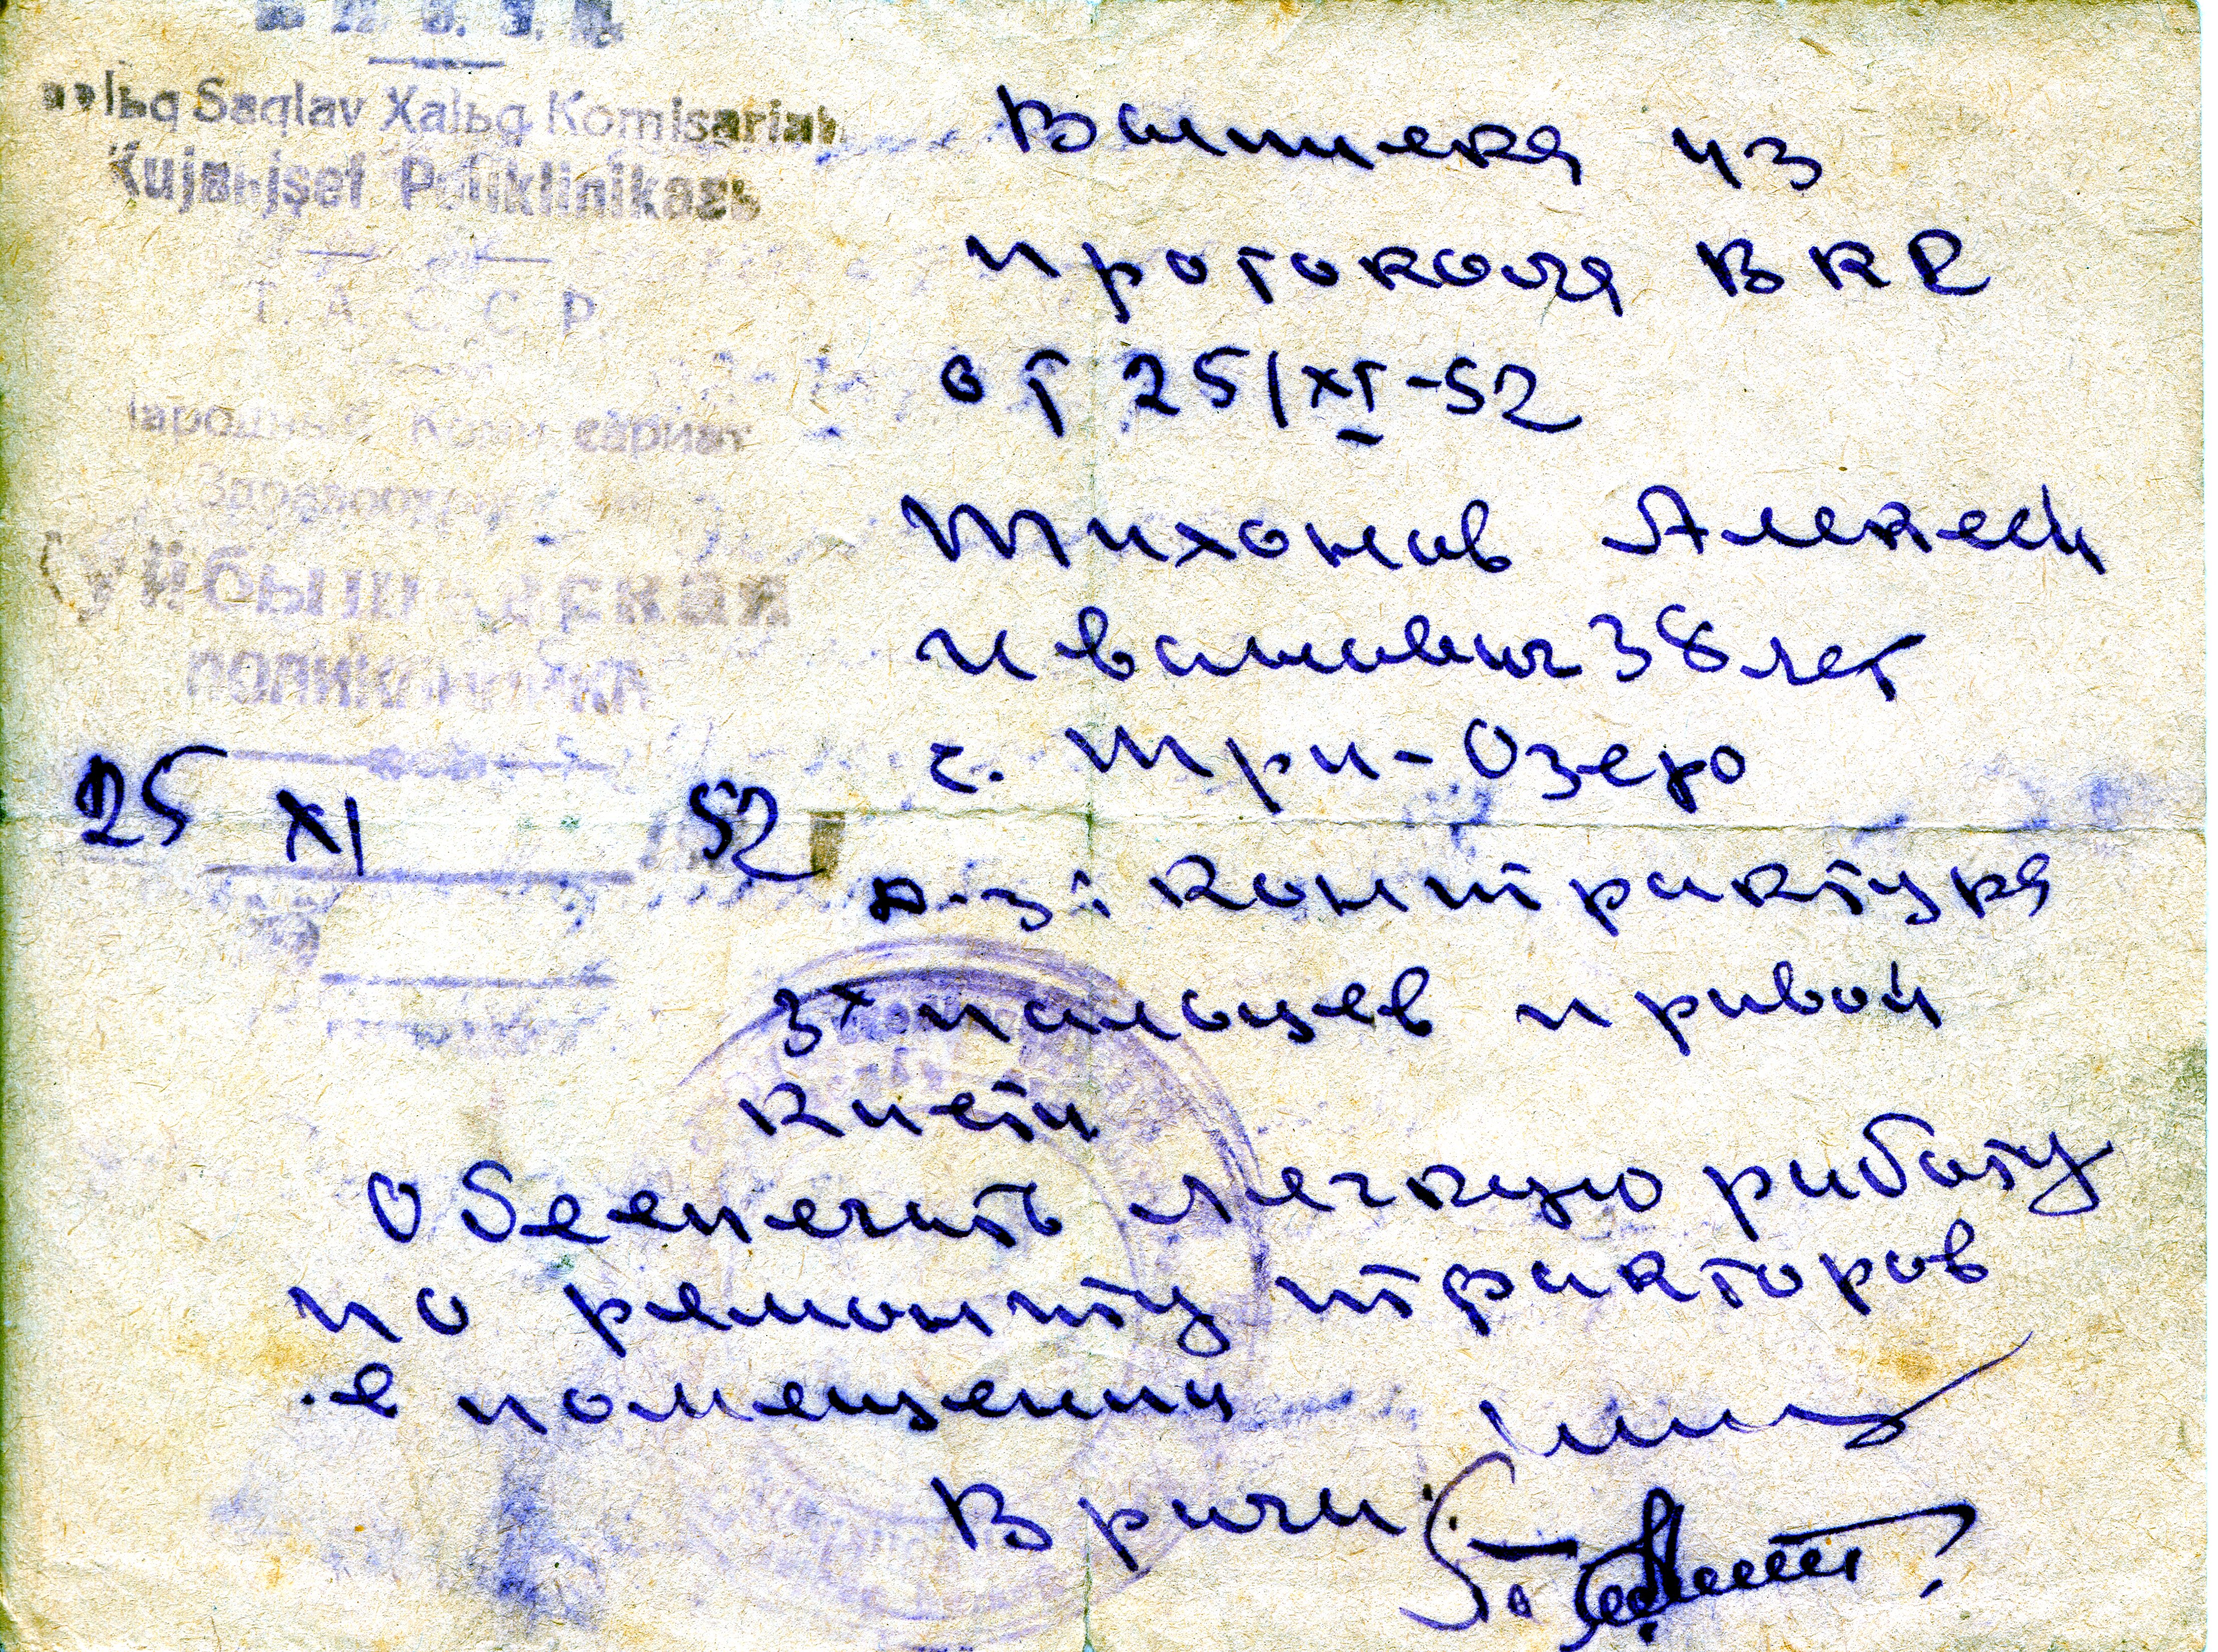 Saqlav Xalьq Komisariatь
Kujbьşef Poliklinikasь
Т. А. С. С. Р.
Народный Комиссариат
Здравоохранения
Куйбышевская
ПОЛИКЛИНИКА
25 XI 1952
Выписка из
протокола ВКК
от 25/XI-52
Тихонов Алексей
Иванович 38 лет
с. Три-Озеро
Д-з: контрактура
3х пальцев правой
кисти
Обеспечить легкую работу
по ремонту тракторов
в помещении
Врачи: